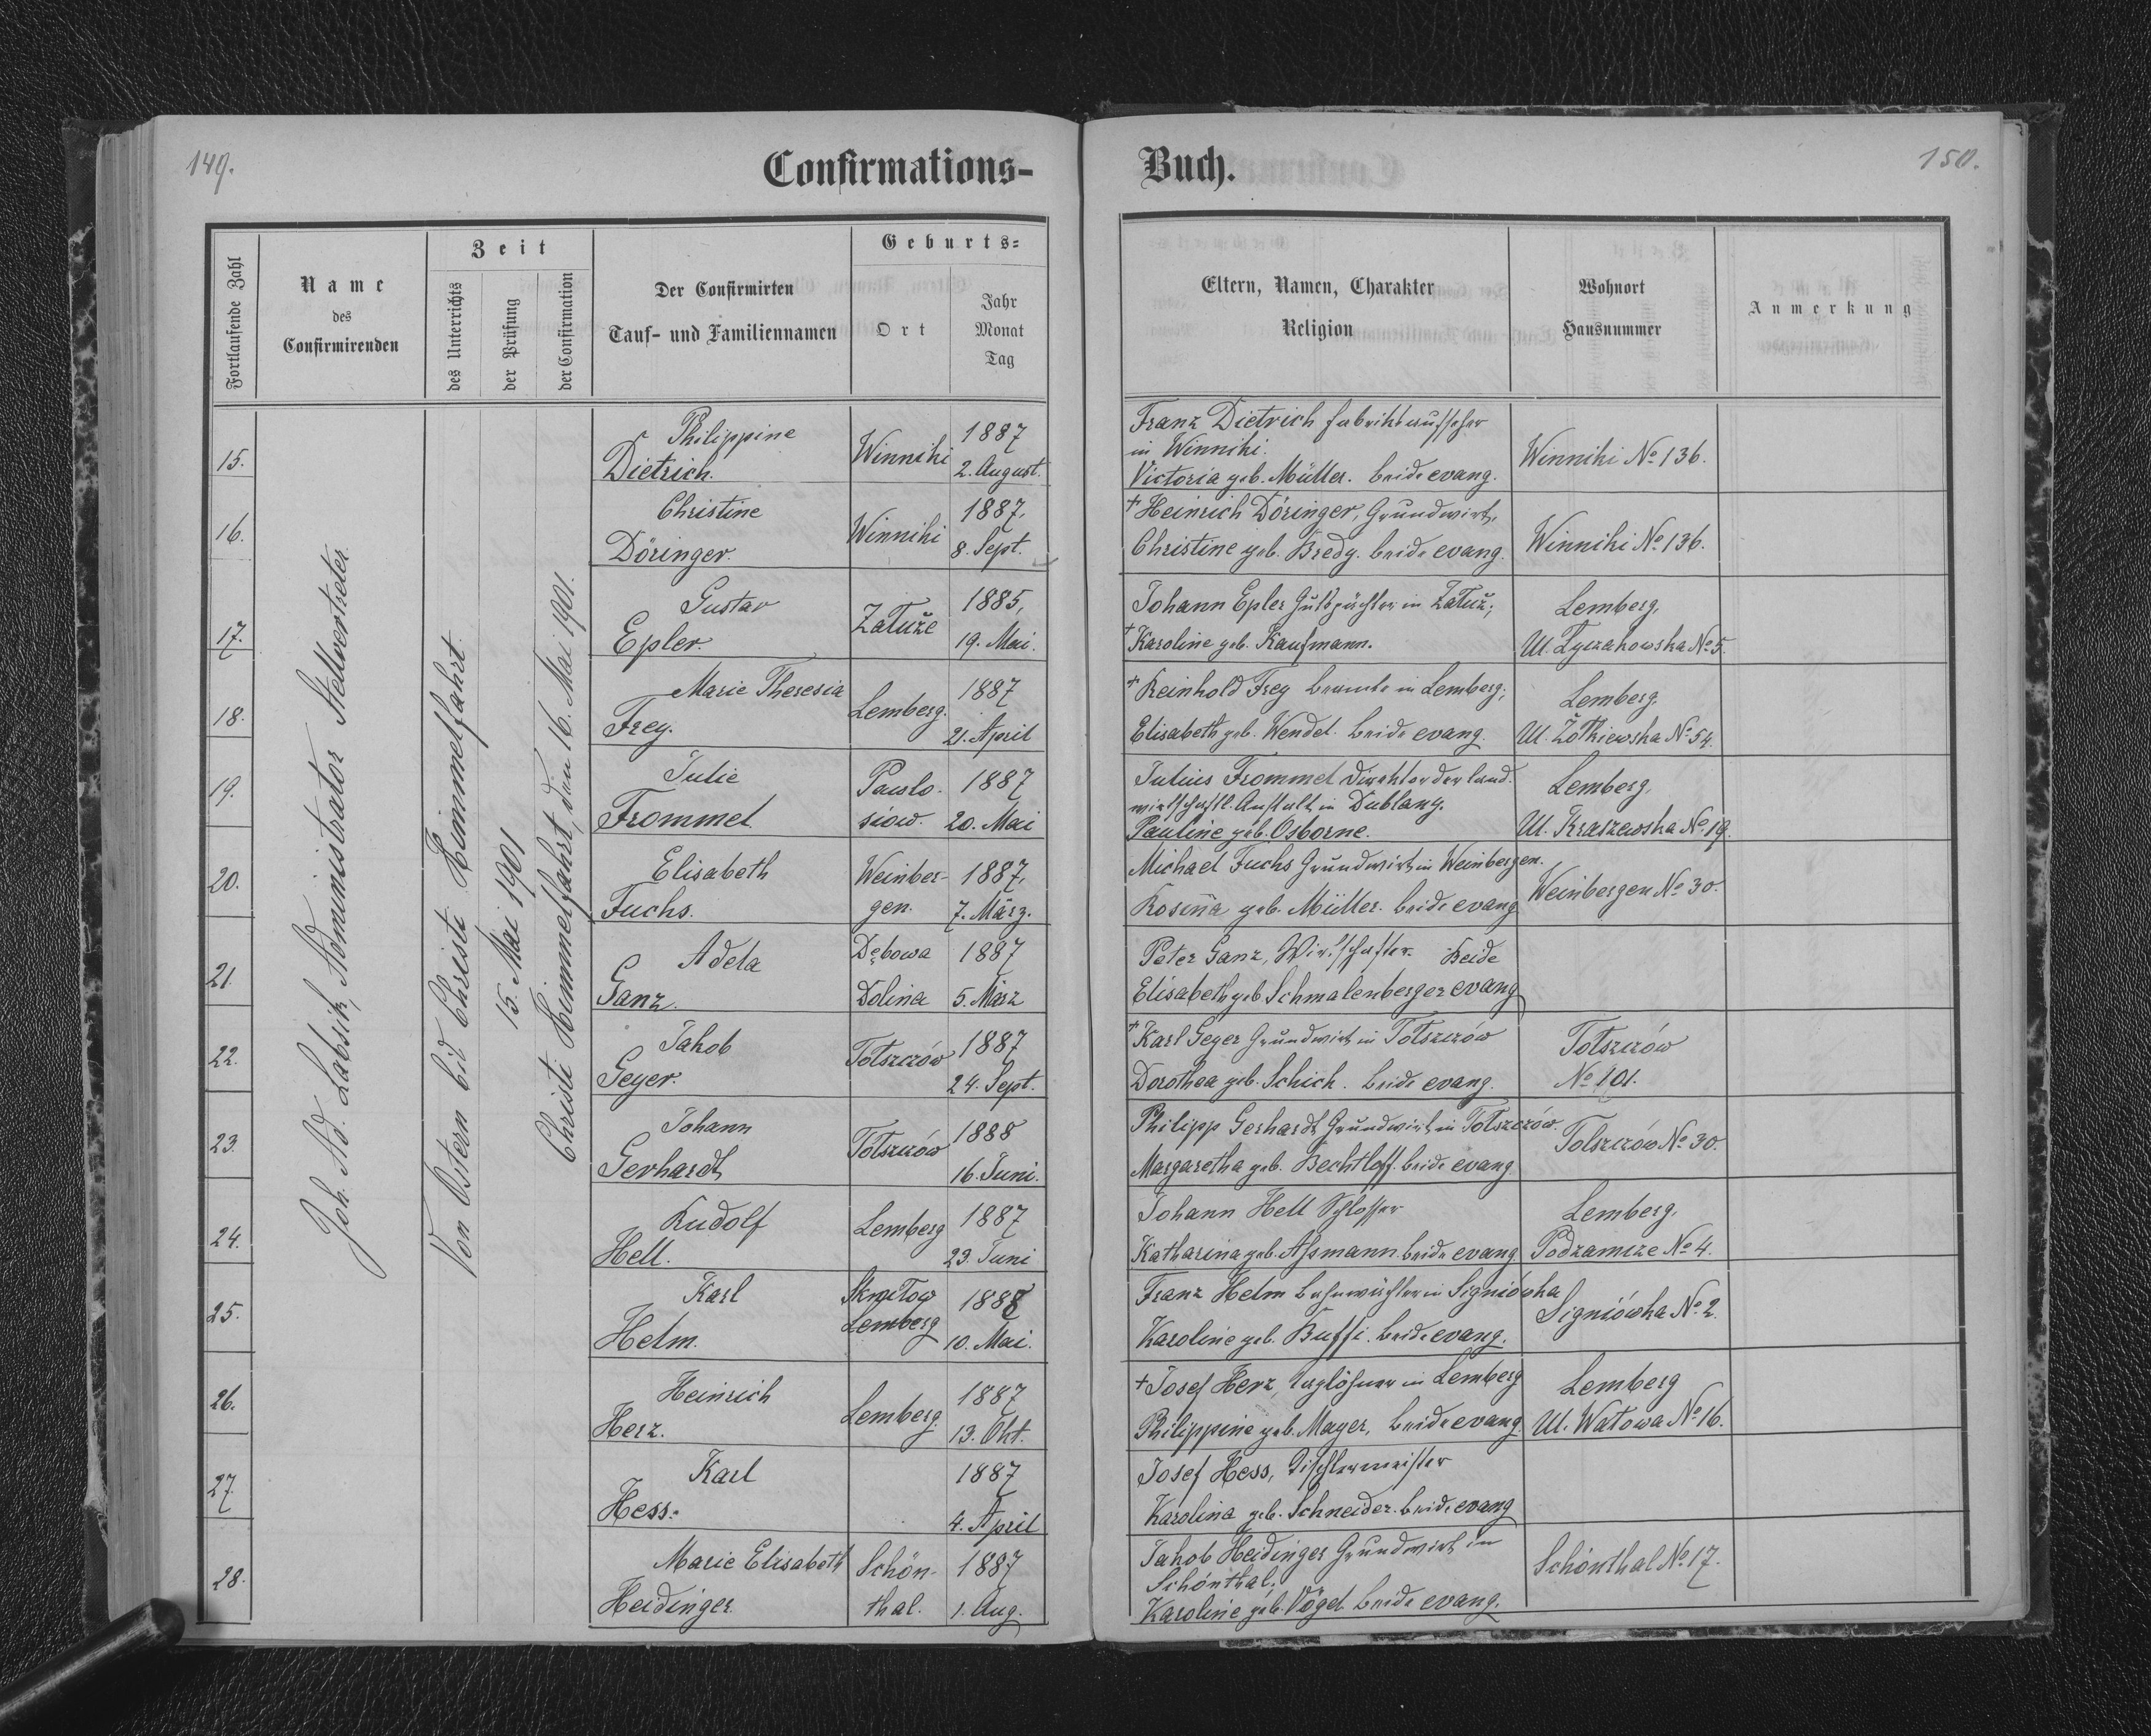 149.
Confirmations-
Buch.
150.
Fortlaufende Zahl
Name
des
Confirmirenden
Zeit
des Unterrichts
der Prüfung
der Confirmation
Der Confirmirten
Tauf- und Familiennamen
Geburts-
Ort
Jahr
Monat
Tag
Eltern, Namen, Charakter
Religion
Wohnort
Hausnummer
Anmerkung
Joh. Ad. Labsik, Administrator Stellvertreter
Von Ostern bis Christi Himmelfahrt
15. Mai 1901
Christi Himmelfahrt, den 16. Mai 1901.
15.
Philippine
Dietrich.
Winniki
1887
2. August.
Franz Dietrich Fabriksaufseher
in Winniki.
Victoria geb. Müller. beide evang.
Winniki No 136.
16.
Christine
Döringer.
Winniki
1887.
8. Sept.
+ Heinrich Döringer, Grundwirt,
Christine geb. Bredy. beide evang.
Winniki No 136.
17.
Gustav
Epler.
Załuże
1885,
19. Mai.
Johann Epler Gutspächter in Załuż;
+ Karoline geb. Kaufmann.
Lemberg,
Ul. Łyczakowska No 5.
18.
Marie Theresia
Frey.
Lemberg.
1887
21. April
+ Reinhold Frey Beamte in Lemberg;
Elisabeth geb. Wendel. beide evang.
Lemberg,
Ul. Żółkiewska No 54.
19.
Julie
Frommel
Pawlo-
siów.
1887
20. Mai
Julius Frommel Direktor der land-
wirtschaftl. Anstalt in Dublany.
Pauline geb. Osborne.
Lemberg,
Ul. Kraszewska No 19.
20.
Elisabeth
Fuchs.
Weinber-
gen.
1887,
7. März.
Michael Fuchs Grundwirt in Weinbergen.
Rosina geb. Müller. beide evang.
Weinbergen No 30.
21.
Adela
Ganz.
Dębowa
Dolina
1887
5. März
Peter Ganz, Wirtschafter. Beide
Elisabeth geb. Schmalenberger evang
22.
Jakob
Geyer.
Tołszczów
1887
24. Sept.
+ Karl Geyer Grundwirt in Tołszczów
Dorothea geb. Schick. beide evang.
Tołszczów
No 101.
23.
Johann
Gerhardt
Tołszczów
1888
16. Juni.
Philipp Gerhardt Grundwirt in Tołszczów.
Margaretha geb. Bechtloff. beide evang
Tolszczów No 30.
24.
Rudolf
Hell.
Lemberg
1887
23. Juni
Johann Hell Schlosser
Katharina geb. Aßmann. beide evang
Lemberg,
Podzamcze No 4.
25.
Karl
Helm.
Lemberg
1888
10. Mai.
Franz Helm Bahnwächter in Signiówka
Karoline geb. Buffi. beide evang.
Signiówka No 2.
26.
Heinrich
Herz.
Lemberg.
1887
13. Okt.
+ Josef Herz, Taglöhner in Lemberg
Philippine geb. Mayer, beide evang.
Lemberg
Ul. Wałowa No 16.
27.
Karl
Hess.
1887
4. April
Josef Hess, Tischlermeister
Karolina geb. Schneider. beide evang
28.
Marie Elisabeth
Heidinger.
Schön-
thal.
1887
1. Aug.
Jakob Heidinger Grundwirt in
Schönthal;
Karoline geb. Vögel. beide evang.
Schönthal No 17.